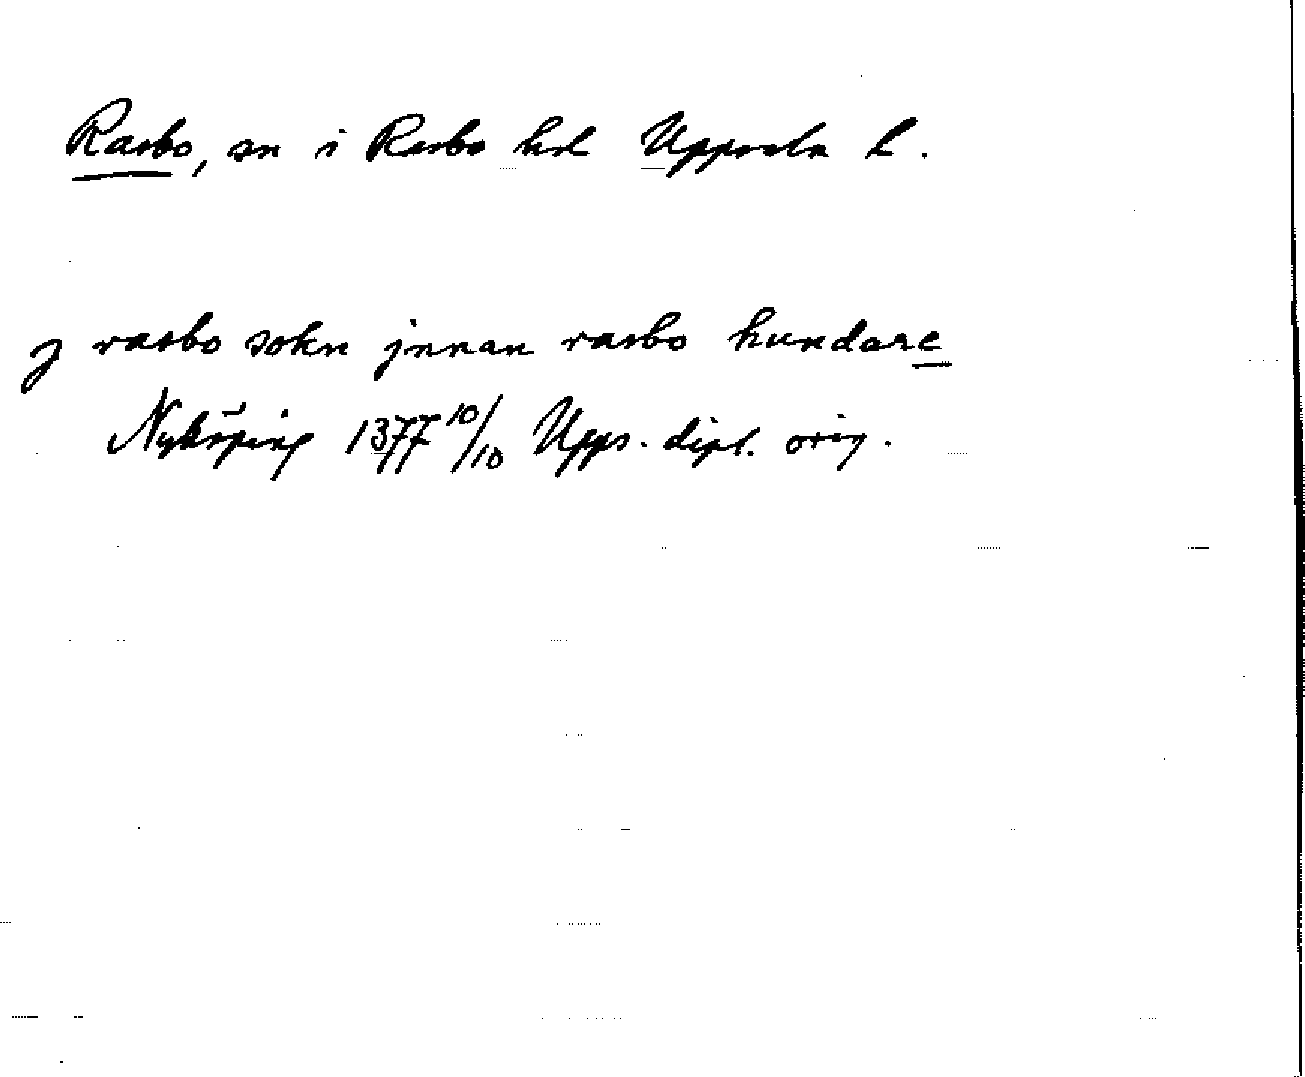 Rasbo, sn i Rasbo hd Uppsala l.
J rasbo sokn jnnan rasbo hundare
Nyköping 1377 10/10 Upps. dipl. orig.